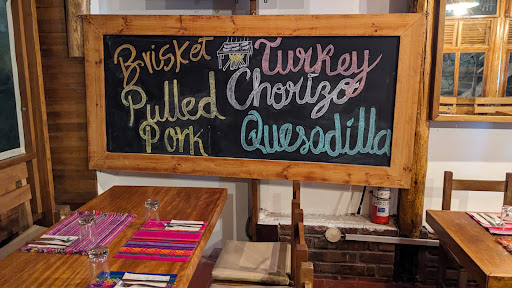 Brisket
Turkey
Pulled
Pork
Chorizo
Quesadilla